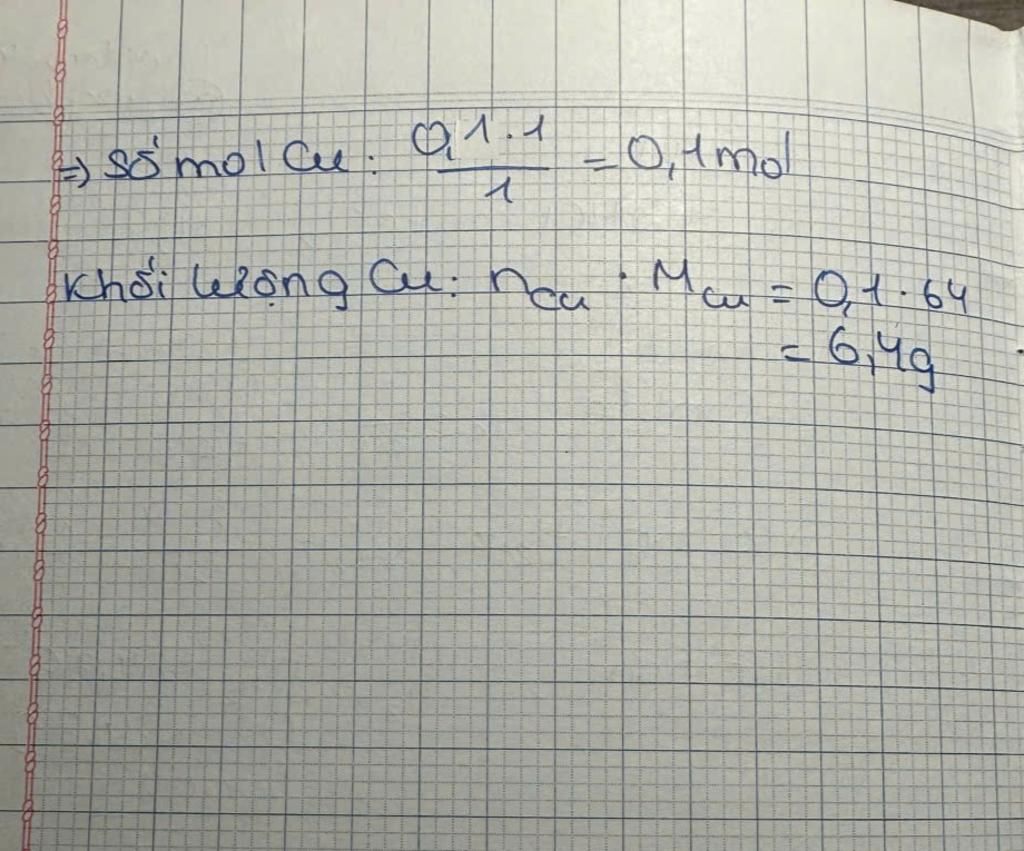 => Số mol Cu: 0,1.1 / 1 = 0,1mol
Khối lượng Cu: nCu . MCu = 0,1.64
= 6,4g